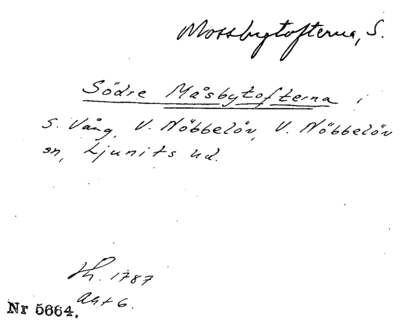 Mossbytofterna, S.
Södre Måsbytofterna i
S. Vång, V. Nöbbelöv, V. Nöbbelöv
sn, Ljunits hd.
Lh. 1787
Akt 6.
Nr 5664.